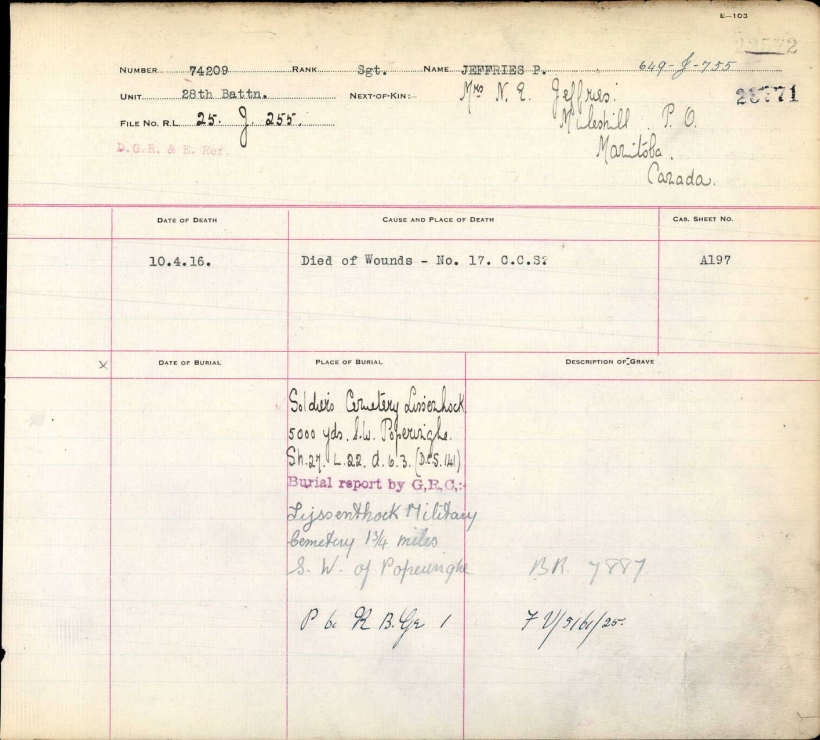 E—103
NUMBER 74209 RANK Sgt. NAME JEFFRIES P. 649-J-755
UNIT 28th Battn. NEXT-OF-KIN:- Mrs N. E. Jeffries.
FILE No. R.L. 25. J. 255. Mileshill P. O.
D.G.R. & E. Ref. Manitoba.
Canada.
DATE OF DEATH CAUSE AND PLACE OF DEATH CAS. SHEET NO.
10.4.16. Died of Wounds - No. 17. C.C.S? A197
x DATE OF BURIAL PLACE OF BURIAL DESCRIPTION OF GRAVE
Soldiers Cemetery Lissenhock
5000 yds. S.W. Poperinghe.
Sh.27. L.22. d. 6.3. (D.C.S. 141)
Burial report by G.R.C.:-
Lijssenthock Military
Cemetery 1¾ miles
S. W. of Poperinghe BR 7887